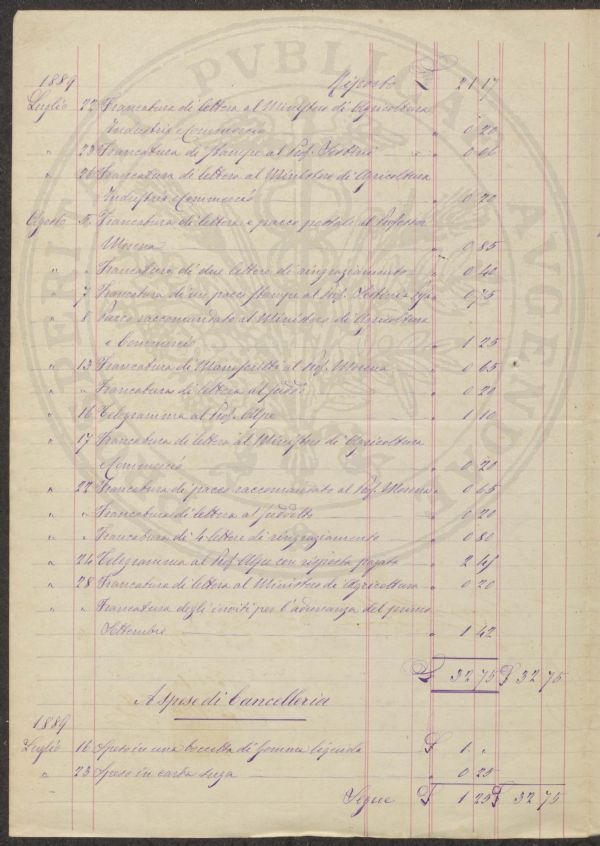 1889 Riporto £ 21 17
Luglio 22 Francatura di lettera al Ministero di Agricoltura
Industria e Commercio " 0 20
" 23 Francatura di stampe al Prof. Sestini " 0 06
" 26 Francatura di lettera al Ministero di Agricoltura
Industria e Commercio " 0 20
Agosto 5 Francatura di lettera e pacco postale al Professor
Morena " 0 85
" " Francatura di due lettere di ringraziamento " 0 40
" 7 Francatura di un pacco stampe al Prof. Sestini 0 75
" 8 Pacco raccomandato al Ministero di Agricoltura
e Commercio " 1 25
" 13 Francatura di Manoscritti al Prof. Morena " 0 65
" " Francatura di lettera al suddo " 0 20
" 16 Telegramma al Prof. Alpe " 1 10
" 17 Francatura di lettera al Ministero di Agricoltura
e Commercio " 0 20
" 22 Francatura di pacco raccomandato al Prof. Morena " 0 65
" " Francatura di lettera al suddetto " 0 20
" " Francatura di 4 lettere di ringraziamento " 0 80
" 24 Telegramma al Prof. Alpe con risposta pagata " 2 45
" 28 Francatura di lettera al Ministero di Agricoltura " 0 20
" " Francatura degli inviti per l'adunanza del primo
Settembre " 1 42
£ 32 75 £ 32 75
A spese di Cancelleria
1889
Luglio 16 Spese in una boccetta di gomma liquida £ 1 "
" 23 Spese in carta suga " 0 25
Segue £ 1 25 £ 32 75
PVBLICA